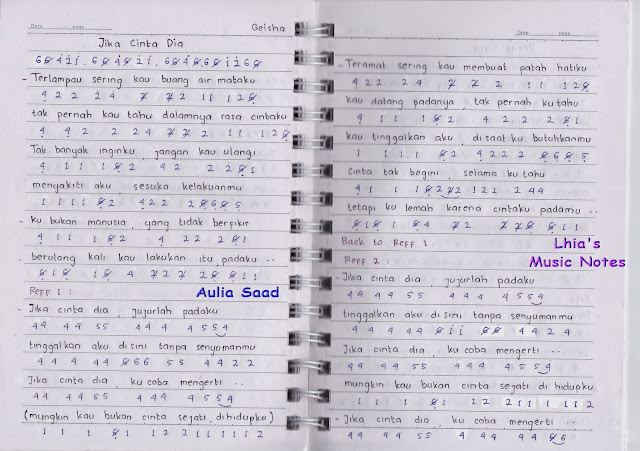 Date page
Geisha
Jika Cinta Dia
- Terlampau sering kau buang air mataku
4 2 2 2 4 7 7 2 1 1 1 2 8
tak pernah kau tahu dalamnya rasa cintaku
4 4 2 2 2 4 7 7 2 1 1 1 2 8
Tak banyak inginku , jangan kau ulangi
4 1 1 1 8 2 4 2 2 2 8 1
menyakiti aku sesuka kelakuanmu
1 1 1 1 8 2 4 2 2 1 2 8 8 2
- Ku bukan manusia , yang tidak berpikir
4 1 1 1 8 2 4 2 2 2 8 1
berulang kali kau lakukan itu padaku ..
8 1 8 1 8 4 7 2 7 2 8 1 1
Reff 1 :
Aulia Saad
- Jika cinta dia , jujurlah padaku
4 4 4 4 5 5 4 4 4 4 5 5 4
tinggalkan aku disini tanpa senyumanmu
4 4 4 4 4 8 6 6 5 5 4 4 2 2
Jika cinta dia , ku coba mengerti ..
4 4 4 4 5 5 4 4 4 4 5 5 4
(mungkin kau bukan cinta sejati dihidupku)
1 1 1 8 1 1 2 2 1 1 1 1 1 2
Date page
- Teramat sering kau membuat patah hatiku
4 2 2 2 4 7 7 2 1 1 1 2 8
kau datang padanya , tak pernah ku tahu
4 1 1 1 8 2 4 2 2 2 8 1
kau tinggalkan aku , di saat ku butuhkanmu
1 1 1 1 8 2 4 2 2 2 8 6 8 5
cinta tak begini , selama ku tahu
4 1 1 1 8 2 7 2 1 2 2 2 4 4
tetapi ku lemah karena cintaku padamu ..
8 1 8 1 8 4 7 2 7 7 8 8 1 1
Back to Reff 1.
Reff 2 :
Lhia's
Music Notes
- Jika cinta dia , jujurlah padaku
4 4 4 4 5 5 4 4 4 4 5 5 4
tinggalkan aku disini tanpa senyumanmu
4 4 4 4 4 8 i i 8 8 4 4 2 4
Jika cinta dia , ku coba mengerti ..
4 4 4 4 5 5 4 4 4 4 5 5 4
mungkin kau bukan cinta sejati di hidupku
1 1 1 8 1 1 2 2 1 1 1 1 1 2
- Jika cinta dia , ku coba mengerti ..
4 4 4 4 5 5 4 4 4 4 4 8 6